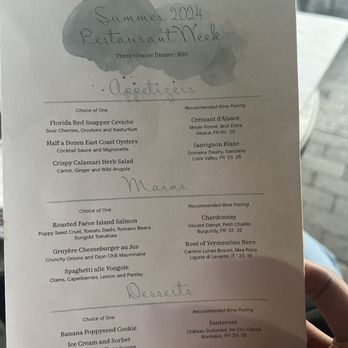 Summer 2024
Restaurant Week
Three Course Dinner | $60
Appetizers
Choice of One
Recommended Wine Pairing
Florida Red Snapper Ceviche
Sour Cherries, Croutons and Nasturtium
Crémant d'Alsace
Meyer-Fonné, Brut Extra
Alsace, FR NV
Half a Dozen East Coast Oysters
Cocktail Sauce and Mignonette
Sauvignon Blanc
Domaine Daulny, Sancerre
Loire Valley, FR '23
Crispy Calamari Herb Salad
Carrot, Ginger and Wild Arugula
Mains
Choice of One
Recommended Wine Pairing
Roasted Faroe Island Salmon
Poppy Seed Crust, Tomato Dashi, Romano Beans
Sungold Tomatoes
Chardonnay
Vincent Dampt, Petit Chablis
Burgundy, FR '22
Gruyère Cheeseburger au Jus
Crunchy Onions and Dijon Chili Mayonnaise
Rosé of Vermentino Nero
Cantine Lunae Bosoni, Mea Rosa
Liguria di Levante, IT '23
Spaghetti alle Vongole
Clams, Caperberries, Lemon and Parsley
Desserts
Choice of One
Recommended Wine Pairing
Banana Poppyseed Cookie
Ice Cream and Sorbet
Sauternes
Château
Bordeaux, FR